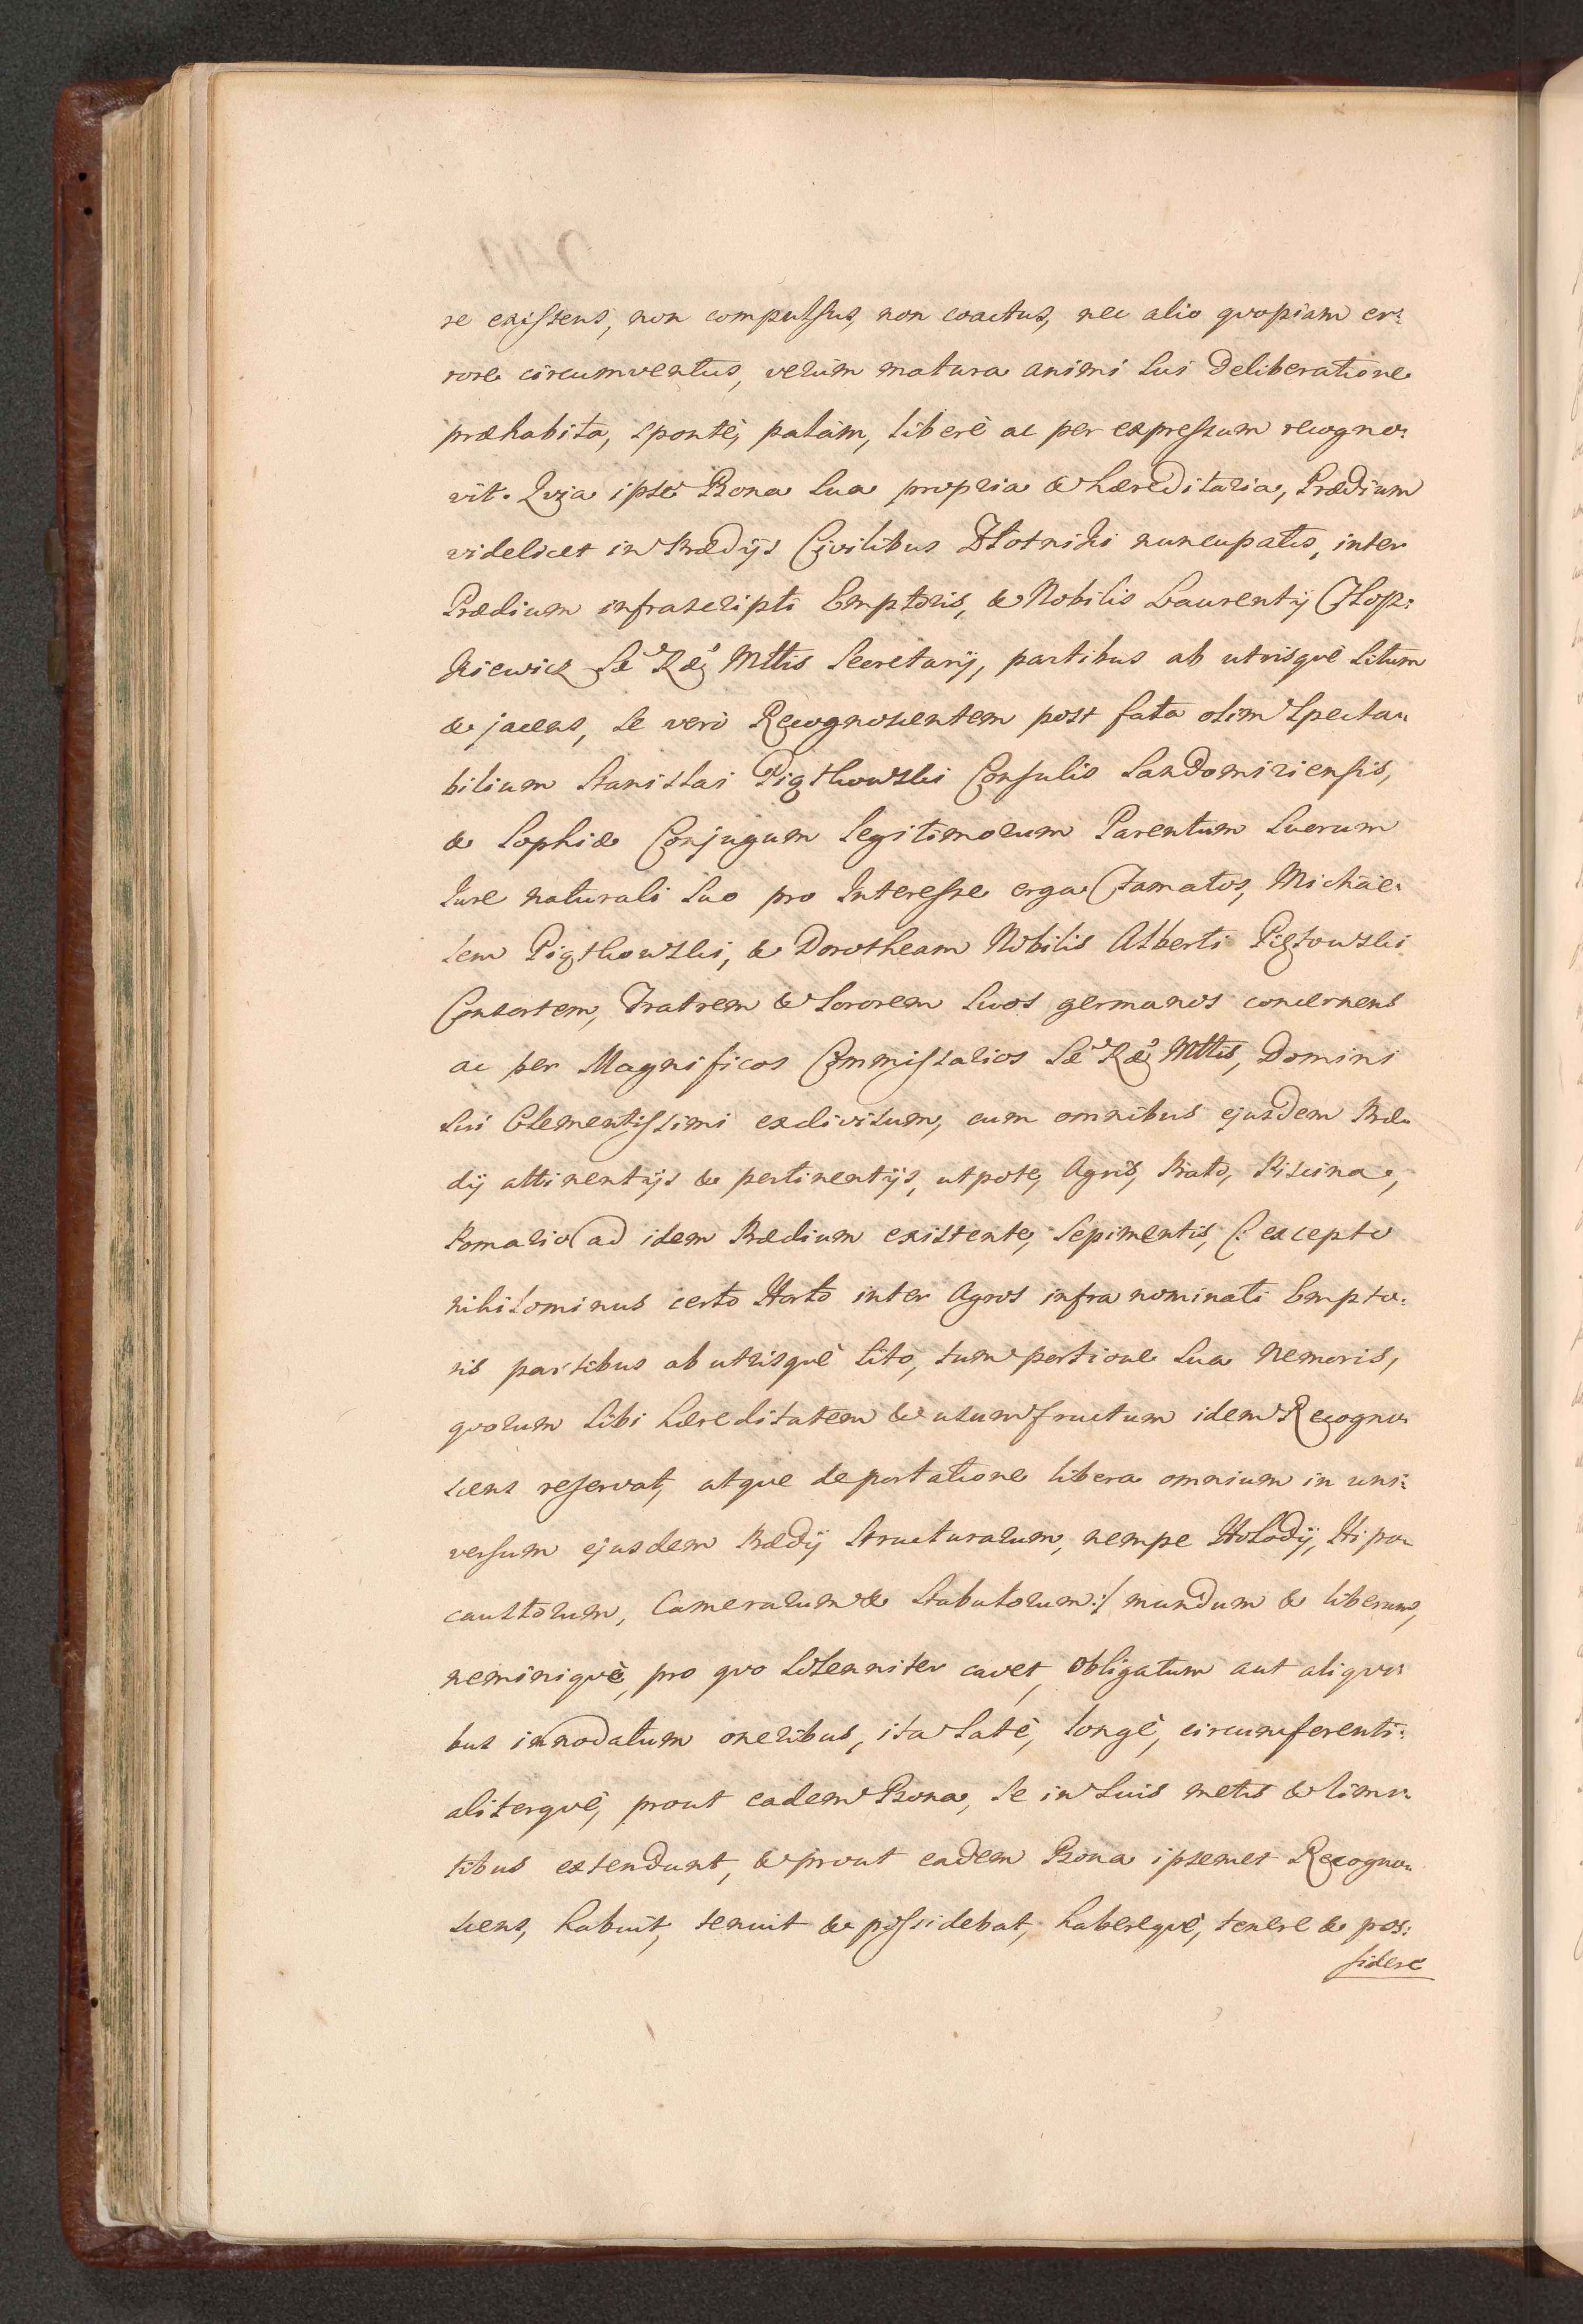 re existens, non compulsus, non coactus, nec alio qvopiam er:
rore circumventus, verum matura animi sui deliberatione
præhabita, spontè, palàm, liberè ac per expressum recogno:
vit. Qvia ipse Bona sua propria & hæreditaria, Prædium
videlicet in Prædijs Civilibus Złotniki nuncupatis, inter
Prædium infrascripti Emptoris, & Nobilis Laurentij Chop:
kiewicz Sæ Ræ Mttis Secretarij, partibus ab utrisqvè situm
& jacens, se verò Recognoscentem post fata olim Specta:
bilium Stanislai Piątkowski Consulis Sandomiriensis,
& Sophiæ Conjugum legitimorum Parentum suorum
Iure naturali suo pro Interesse erga Famatos, Michae:
lem Piątkowski, & Dorotheam Nobilis Alberti Piętowski
Consortem, Fratrem & Sororem suos germanos concernens
ac per Magnificos Commissarios Sæ Ræ Mttis, Domini
sui Clementissimi exdivisum, cum omnibus ejusdem Præ:
dij attinentijs & pertinentijs, utpote, Agris, Prato, Piscina,
Pomario ad idem Prædium existente, Sepimentis, (: excepto
nihilominus certo Horto inter Agros infra nominati Empto:
ris partibus ab utrisqvè sito, tum portione sua Nemoris,
qvorum sibi hæreditatem & usumfructum idem Recogno:
scens reservat, atque deportatione libera omnium in uni:
versum ejusdem Prædij structurarum, nempe Hołodij, Hipo:
caustorum, Camerarum & Stabulorum :/ mundum & liberum,
neminiqvè, pro qvo solenniter cavet, obligatum aut aliqvi:
bus innodatum oneribus, ita latè, longè, circumferenti:
aliterqvè, prout eadem Bona, se in suis metis & limi:
tibus extendunt, & prout eadem Bona ipsemet Recogno:
scens, habuit, tenuit & possidebat, habereqvè, tenere & pos:
sidere